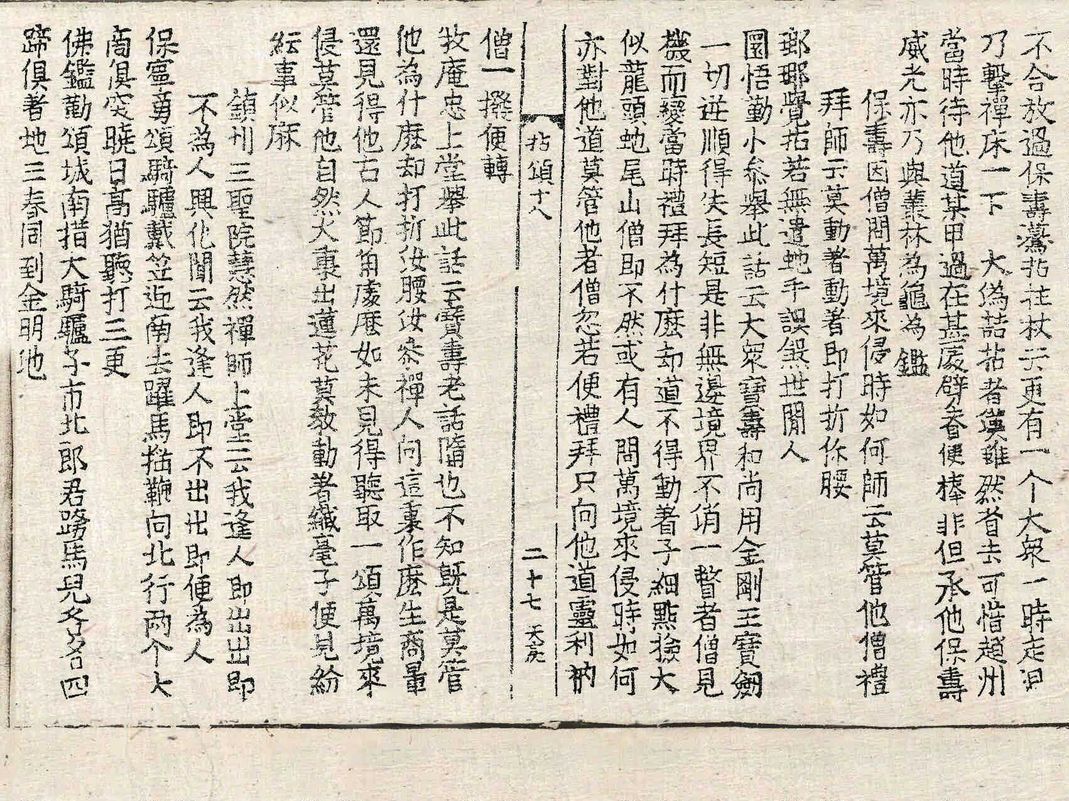 不合放過保壽驀拈拄杖云更有一个大衆一時走退
乃擊禪床一下　大溈喆拈者漢雖然省去可惜趙州
當時待他道某甲過在甚處劈脊便棒非但承他保壽
威光亦乃與叢林為龜為鑑
保壽因僧問萬境來侵時如何師云莫管他僧禮
拜師云莫動著動著即打折你腰
瑯瑘覺拈若無遣虵手誤殺世閒人
圜悟勤小叅舉此話云大衆寶壽和尚用金剛王寶劒
一切逆順得失長短是非無邊境界不消一瞥者僧見
機而變當時禮拜為什麽却道不得動著子細點撿大
似龍頭虵尾山僧即不然或有人問萬境來侵時如何
亦對他道莫管他者僧忽若便禮拜只向他道靈利衲
拈頌十八
二十七
僧一撥便轉
牧庵忠上堂舉此話云寶壽老話隋也不知旣是莫管
他為什麽却打折汝腰汝叅禪人向這裏作麽生商量
還見得他古人節角處麽如未見得聽取一頌萬境來
侵莫管他自然火裏出蓮花莫教動著纖毫子便見紛
紜事似麻
鎮州三聖院慧然禪師上堂云我逢人即出出即
不為人興化聞云我逢人即不出出即便為人
保寧勇頌騎驢戴笠近南去躍馬揺鞭向北行两个大
商俱突曉日髙猶聽打三更
佛鑑懃頌城南措大騎驢子市北郎君跨馬兒各各四
蹄俱著地三春同到金明地